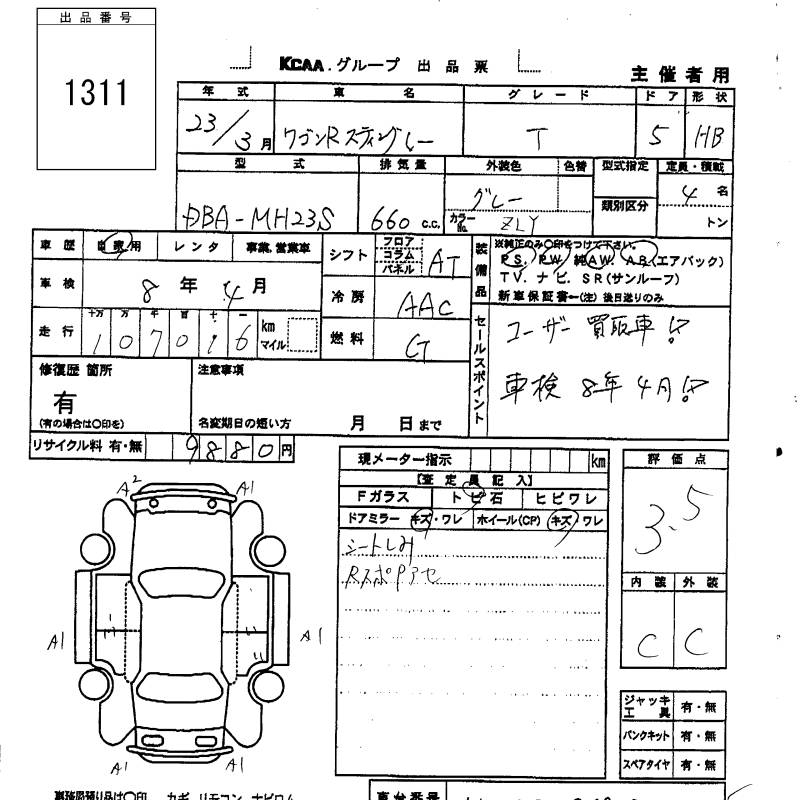 出品番号
1311
KCAA.グループ 出品票
主催者用
年式 車名 グレード ドア 形状
23/3月 ワゴンRスティングレー T 5 HB
型式 排気量 外装色 色替 型式指定 定員・積載
DBA-MH23S 660 c.c. グレー 類別区分 4 名
カラーNo. ZLY トン
車歴 自家用 レンタ 事業、営業車
シフト フロア コラム パネル AT
装備品 ※純正のみ○印をつけて下さい。
PS. PW. 純AW. AB.(エアバック)
TV. ナビ. SR(サンルーフ)
新車保証書←(注) 後日送りのみ
車検 8年 4月
冷房 AAC
走行 十万 万 千 百 十 一
107016 km マイル
燃料 G
セールスポイント
ユーザー買取車!!
車検 8年 4月!!
修復歴 箇所
有
(有の場合は○印を)
注意事項
名変期日の短い方 月 日まで
リサイクル料 有・無 9880円
現メーター指示 km
【査定員記入】
Fガラス トビ石 ヒビワレ
ドアミラー キズ・ワレ ホイール(CP) キズ/ワレ
シートしみ
RスポPアセ
評価点
3.5
内装 外装
C C
A2 A1
A1 A1
A1 A1
ジャッキ 工具 有・無
パンクキット 有・無
スペアタイヤ 有・無
車台番号